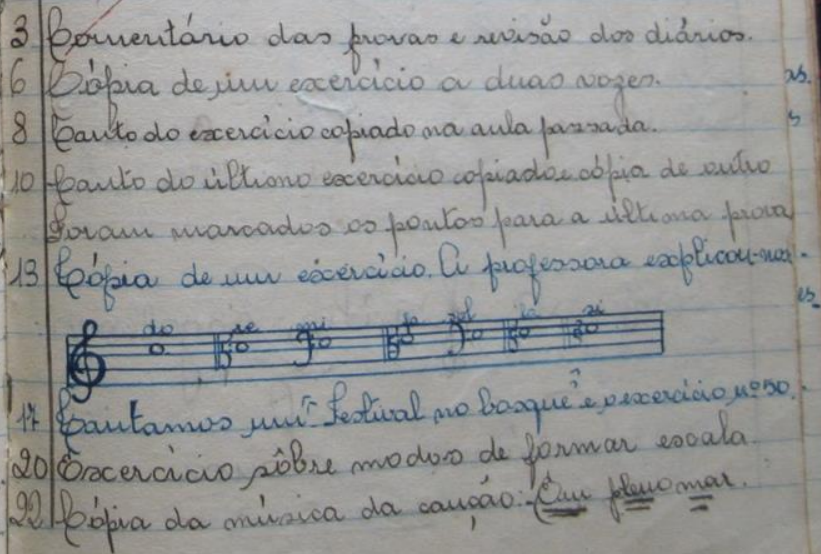 3 Comentário das provas e revisão dos diários.
6 Cópia de um excercício a duas vozes.
8 Canto do excercício copiado na aula passada.
10 Canto do último excercício copiado e cópia de outro
Foram marcados os pontos para a última prova
13 Cópia de um excercício. A professora explicou-nos.
do re mi fa sol la si
17 Cantamos um "Festival no bosque" e o excercício nº 50.
20 Excercício sôbre modos de formar escala.
22 Cópia da música da canção: Em pleno mar.